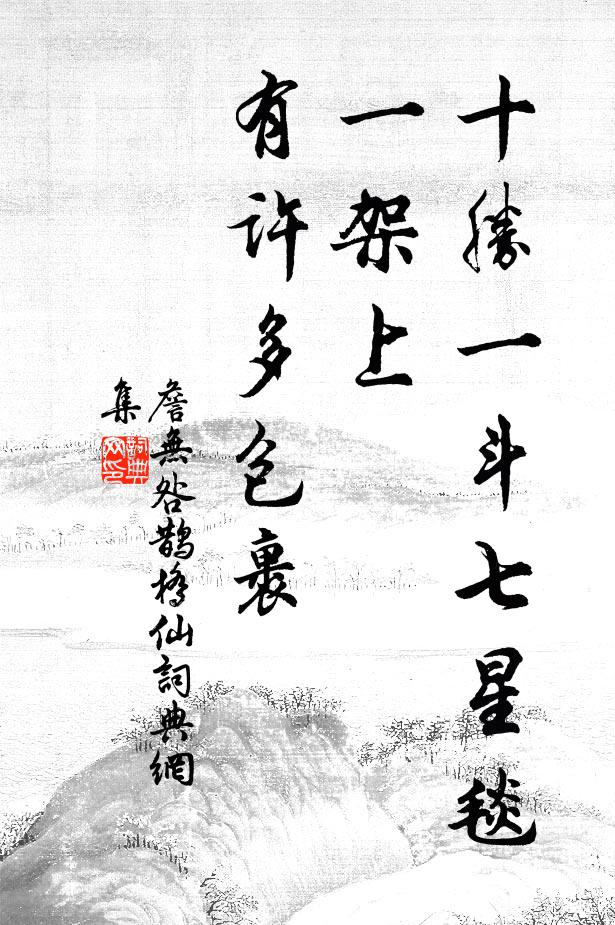 十勝一斗七星毯
一架上
有許多包裹
詹無咎鵲橋仙詞典網
集
詞典
网印